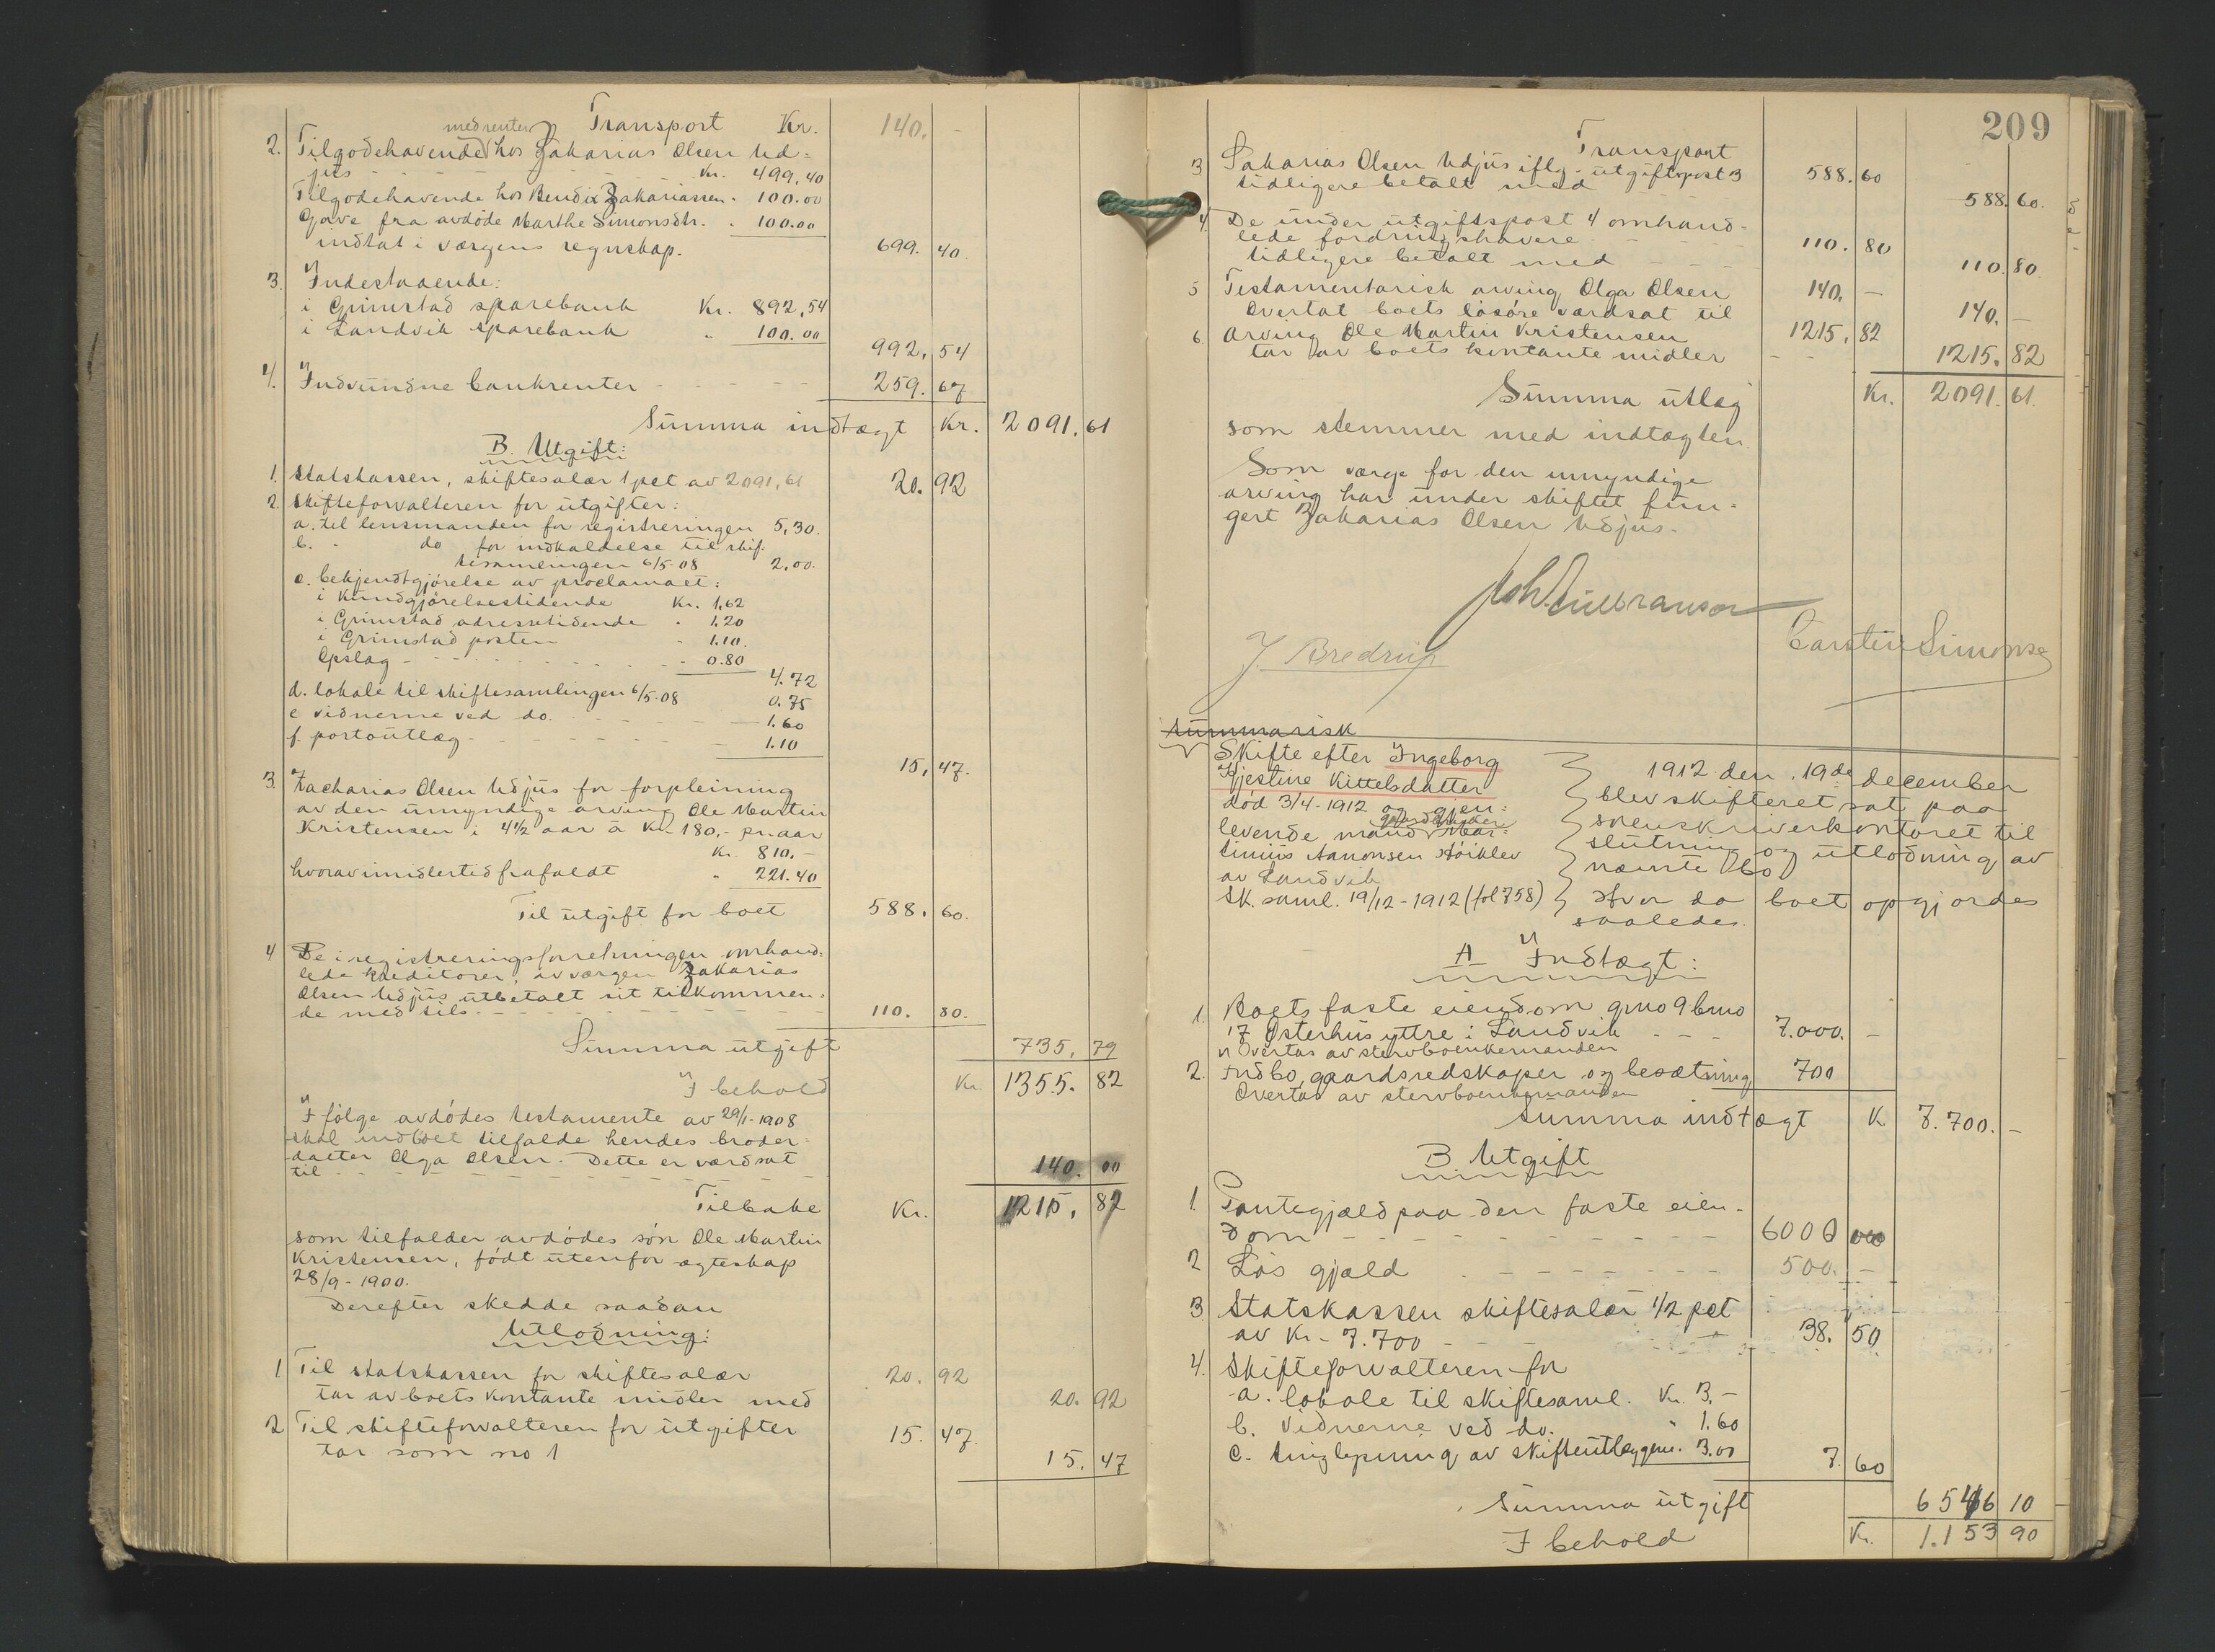 Transport Kr. 140. -
med renter
2. Tilgodehavende hos Zakarias Olsen Ud-
jus - - - Kr. 499,40
Tilgodehavende hos Bendix Zakariassen " 100.00
Gave fra avdöde Marthe Simonsdtr. " 100.00
indtat i værgens regnskap. 699. 40
3. Indestaaende:
i Grimstad sparebank Kr. 892,54
i Landvik sparebank " 100.00
992, 54
4. Indvundne bankrenter - - - - - 259. 67
Summa indtægt Kr. 2091. 61
B. Utgift:
1. Statskassen, skiftesalær 1 pct av 2091,61 20. 92
2. Skifteforvalteren for utgifter:
a. til lensmanden for registreringen 5,30.
b. " do for indkaldelse til skif-
tesamlingen 6/5-08 2,00.
c. bekjendtgjörelse av proclamaet:
i Kundgjörelsestidende Kr. 1,62
i Grimstad adressetidende " 1.20
i Grimstad posten " 1.10.
Opslag - - - - - 0.80
4.72
d. lokale til skiftesamlingen 6/5-08 0.75
e vidnerne ved do. - - - - 1.60
f. portoutlæg - - - - - 1.10
15, 47.
3. Zacharias Olsen Udjus for forpleining
av den umyndige arving Ole Martin
Kristensen i 4 1/2 aar a Kr. 180,- pr. aar
Kr. 810.-
hvorav imidlertid frafaldt " 221.40
Til utgift for boet 588. 60.
4 De i registreringsforretningen omhand-
lede kreditorer, av værgen Zakarias
Olsen Udjus utbetalt sit tilkommen-
de med tils. - - - - - 110. 80.
Summa utgift 735, 79
I behold Kr. 1355. 82
I fölge avdödes testamente av 29/1-1908
skal indboet tilfalde hendes broder-
datter Olga Olsen. Dette er værdsat
til - - - - - 140. 00
Tilbake Kr. 1215, 82
som tilfalder avdödes sön Ole Martin
Kristensen, födt utenfor ægteskap
28/9-1900.
Derefter skedde saadan
Utlodning:
1 Til statskassen for skiftesalær 20. 92
tar av boets kontante midler med 20. 92
2 Til skifteforvalteren for utgifter 15. 47.
tar som no 1 15. 47
209
Transport
3 Sakarias Olsen Udjus iflg. utgiftspost 3 588. 60
tidligere betalt med 588. 60.
4. De under utgiftspost 4 omhand-
lede fordringshavere - - - 110. 80
tidligere betalt med - - - 110. 80.
5 Testamentarisk arving Olga Olsen 140. -
Overtat boets lösöre værdsat til 140. -
6 Arving Ole Martin Kristensen 1215, 82
tar av boets kontante midler - - 1215. 82
Summa utlæg Kr. 2091. 61.
som stemmer med indtægten.
Som værge for den umyndige
arving har under skiftet fun-
gert Zakarias Olsen Udjus.
J. Bredrup Carsten Simonse
summarisk
Skifte efter Ingeborg
Kjestine Kittelsdatter
död 3/4-1912 og gjen-
gaardbruker
levende mand Mar-
tinius Aanonsen Höiklev
av Landvik
Sk. saml. 19/12-1912 (fol 758)
1912 den 19de december
blev skifteret sat paa
sorenskriverkontoret til
slutning og utlodning av
nævnte bo
Hvor da boet opgjordes
saaledes.
A Indtægt:
1. Boets faste eiendom gno 9 bno
17 Österhus yttre i Landvik - - - 7.000. -
Overtas av stervboenkemanden
2. Indbo, gaardsredskaper og besætning 700
Overtas av stervboenkemanden
Summa indtægt K 7.700. -
B. Utgift
1. Pantegjæld paa den faste eien-
dom - - - - - 6000 00
2 Lös gjæld - - - - - 500. -
3 Statskassen skiftesalær 1/2 pct
av Kr. 7.700 - - - 38. 50
4. Skifteforvalteren for
a. lokale til skiftesaml. Kr. 3,-
b. vidnerne ved do. " 1.60
c. tinglysning av skifteutlæggene. 3.00 7. 60
Summa utgift 6546 10
I behold Kr. 1.153 90